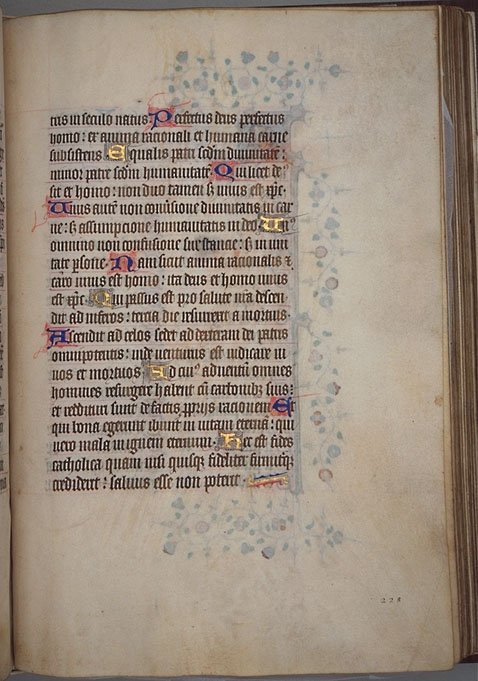 tris in seculo natus Perfectus deus perfectus
homo: ex anima racionali et humana carne
subsistens Equalis patri scdm divinitate:
minor patre scdm humanitate. Qui licet de
sit et homo: non duo tamen sz unus est xpc.
Unus aute non conversione divinitatis in car
ne: sz assumpcione humanitatis in deo Un
omnino non confusione substancie: sz in uni
tate psone. Nam sicut anima racionalis &
caro unus est homo: ita deus et homo unus
est xpc. Qui passus est pro salute nra descen
dit ad inferos: tercia die resurrexit a mortuis.
Ascendit ad celos sedet ad dexteram dei patris
omnipotentis: inde venturus est iudicare vi
vos et mortuos Ad cui adventu omnes
homines resurgere habent cu corporibz suis:
et reddituri sunt de factis pprijs racionem Et
qui bona egerunt ibunt in vitam eterna: qui
vero mala in ignem eternum. Hec est fides
catholica quam nisi quisqz fideliter firmiterqz
crediderit: salvus esse non poterit.
225